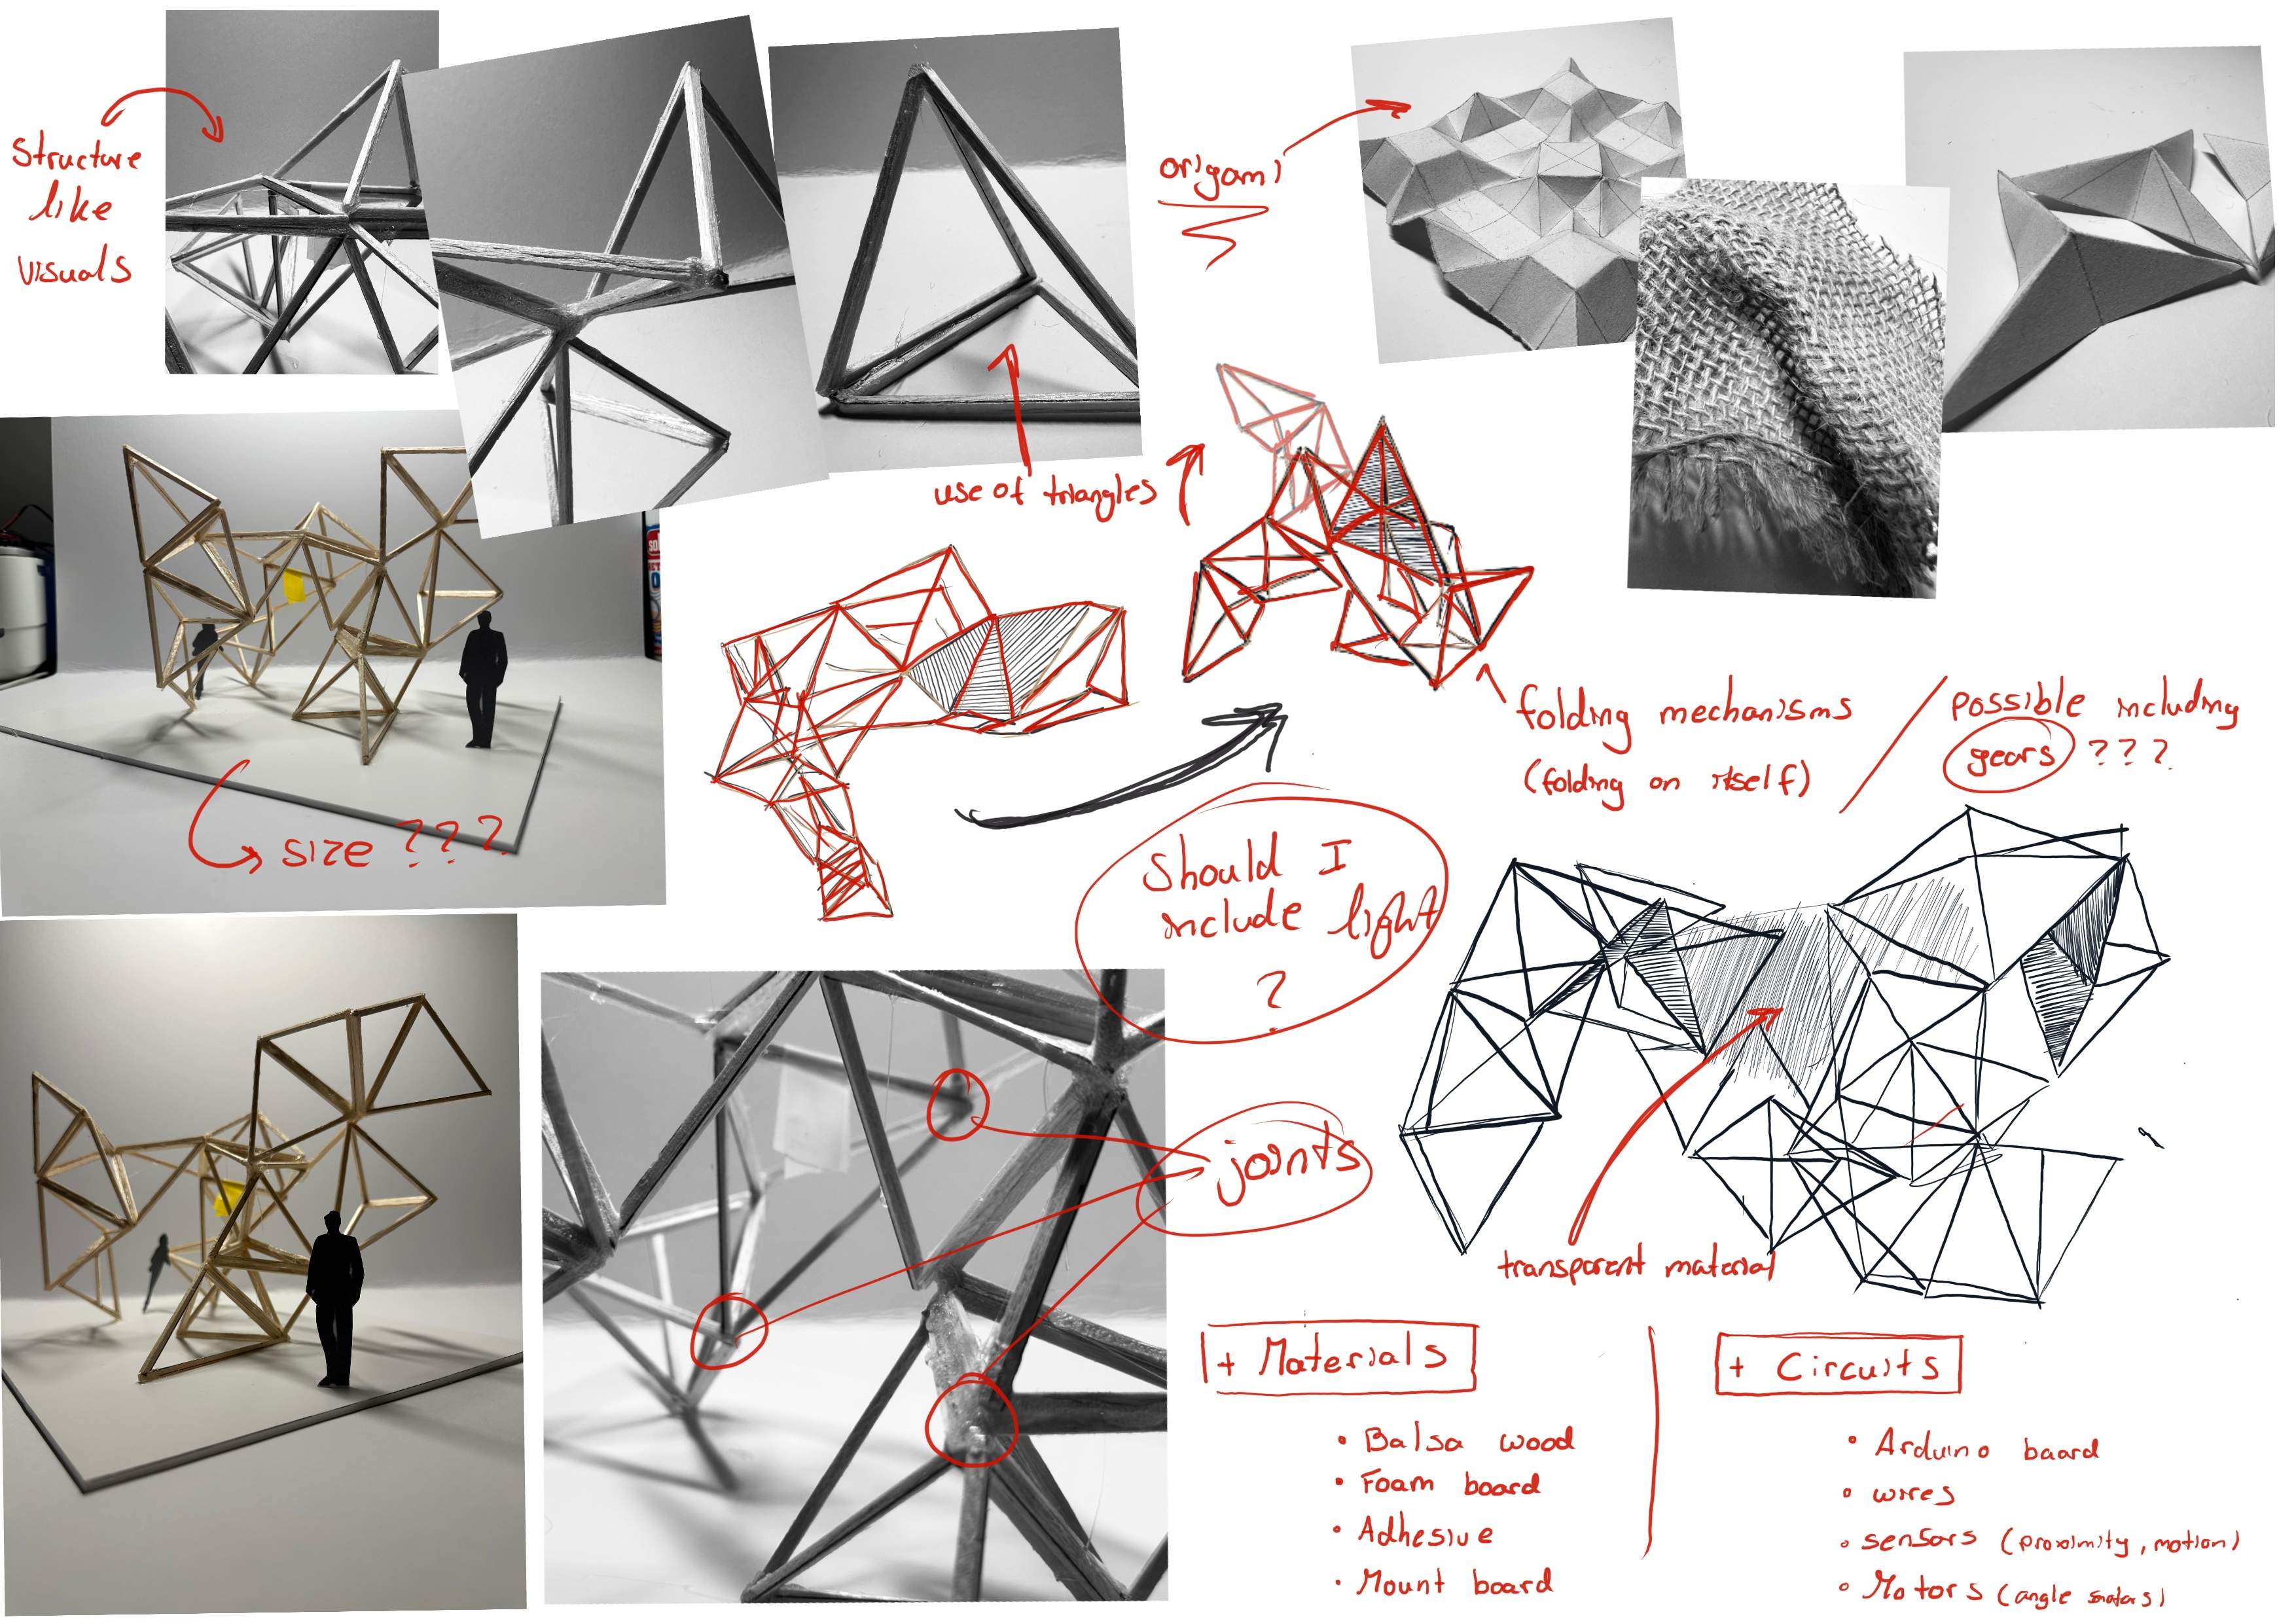 structure
like
visuals
origami
use of triangles
size ???
folding mechanisms
(folding on itself)
possible including
gears ???
Should I
include light
?
joints
transparent material
+ Materials
• Balsa wood
• Foam board
• Adhesive
• Mount board
+ Circuits
• Arduino board
• wires
• sensors (proximity, motion)
• Motors (angle